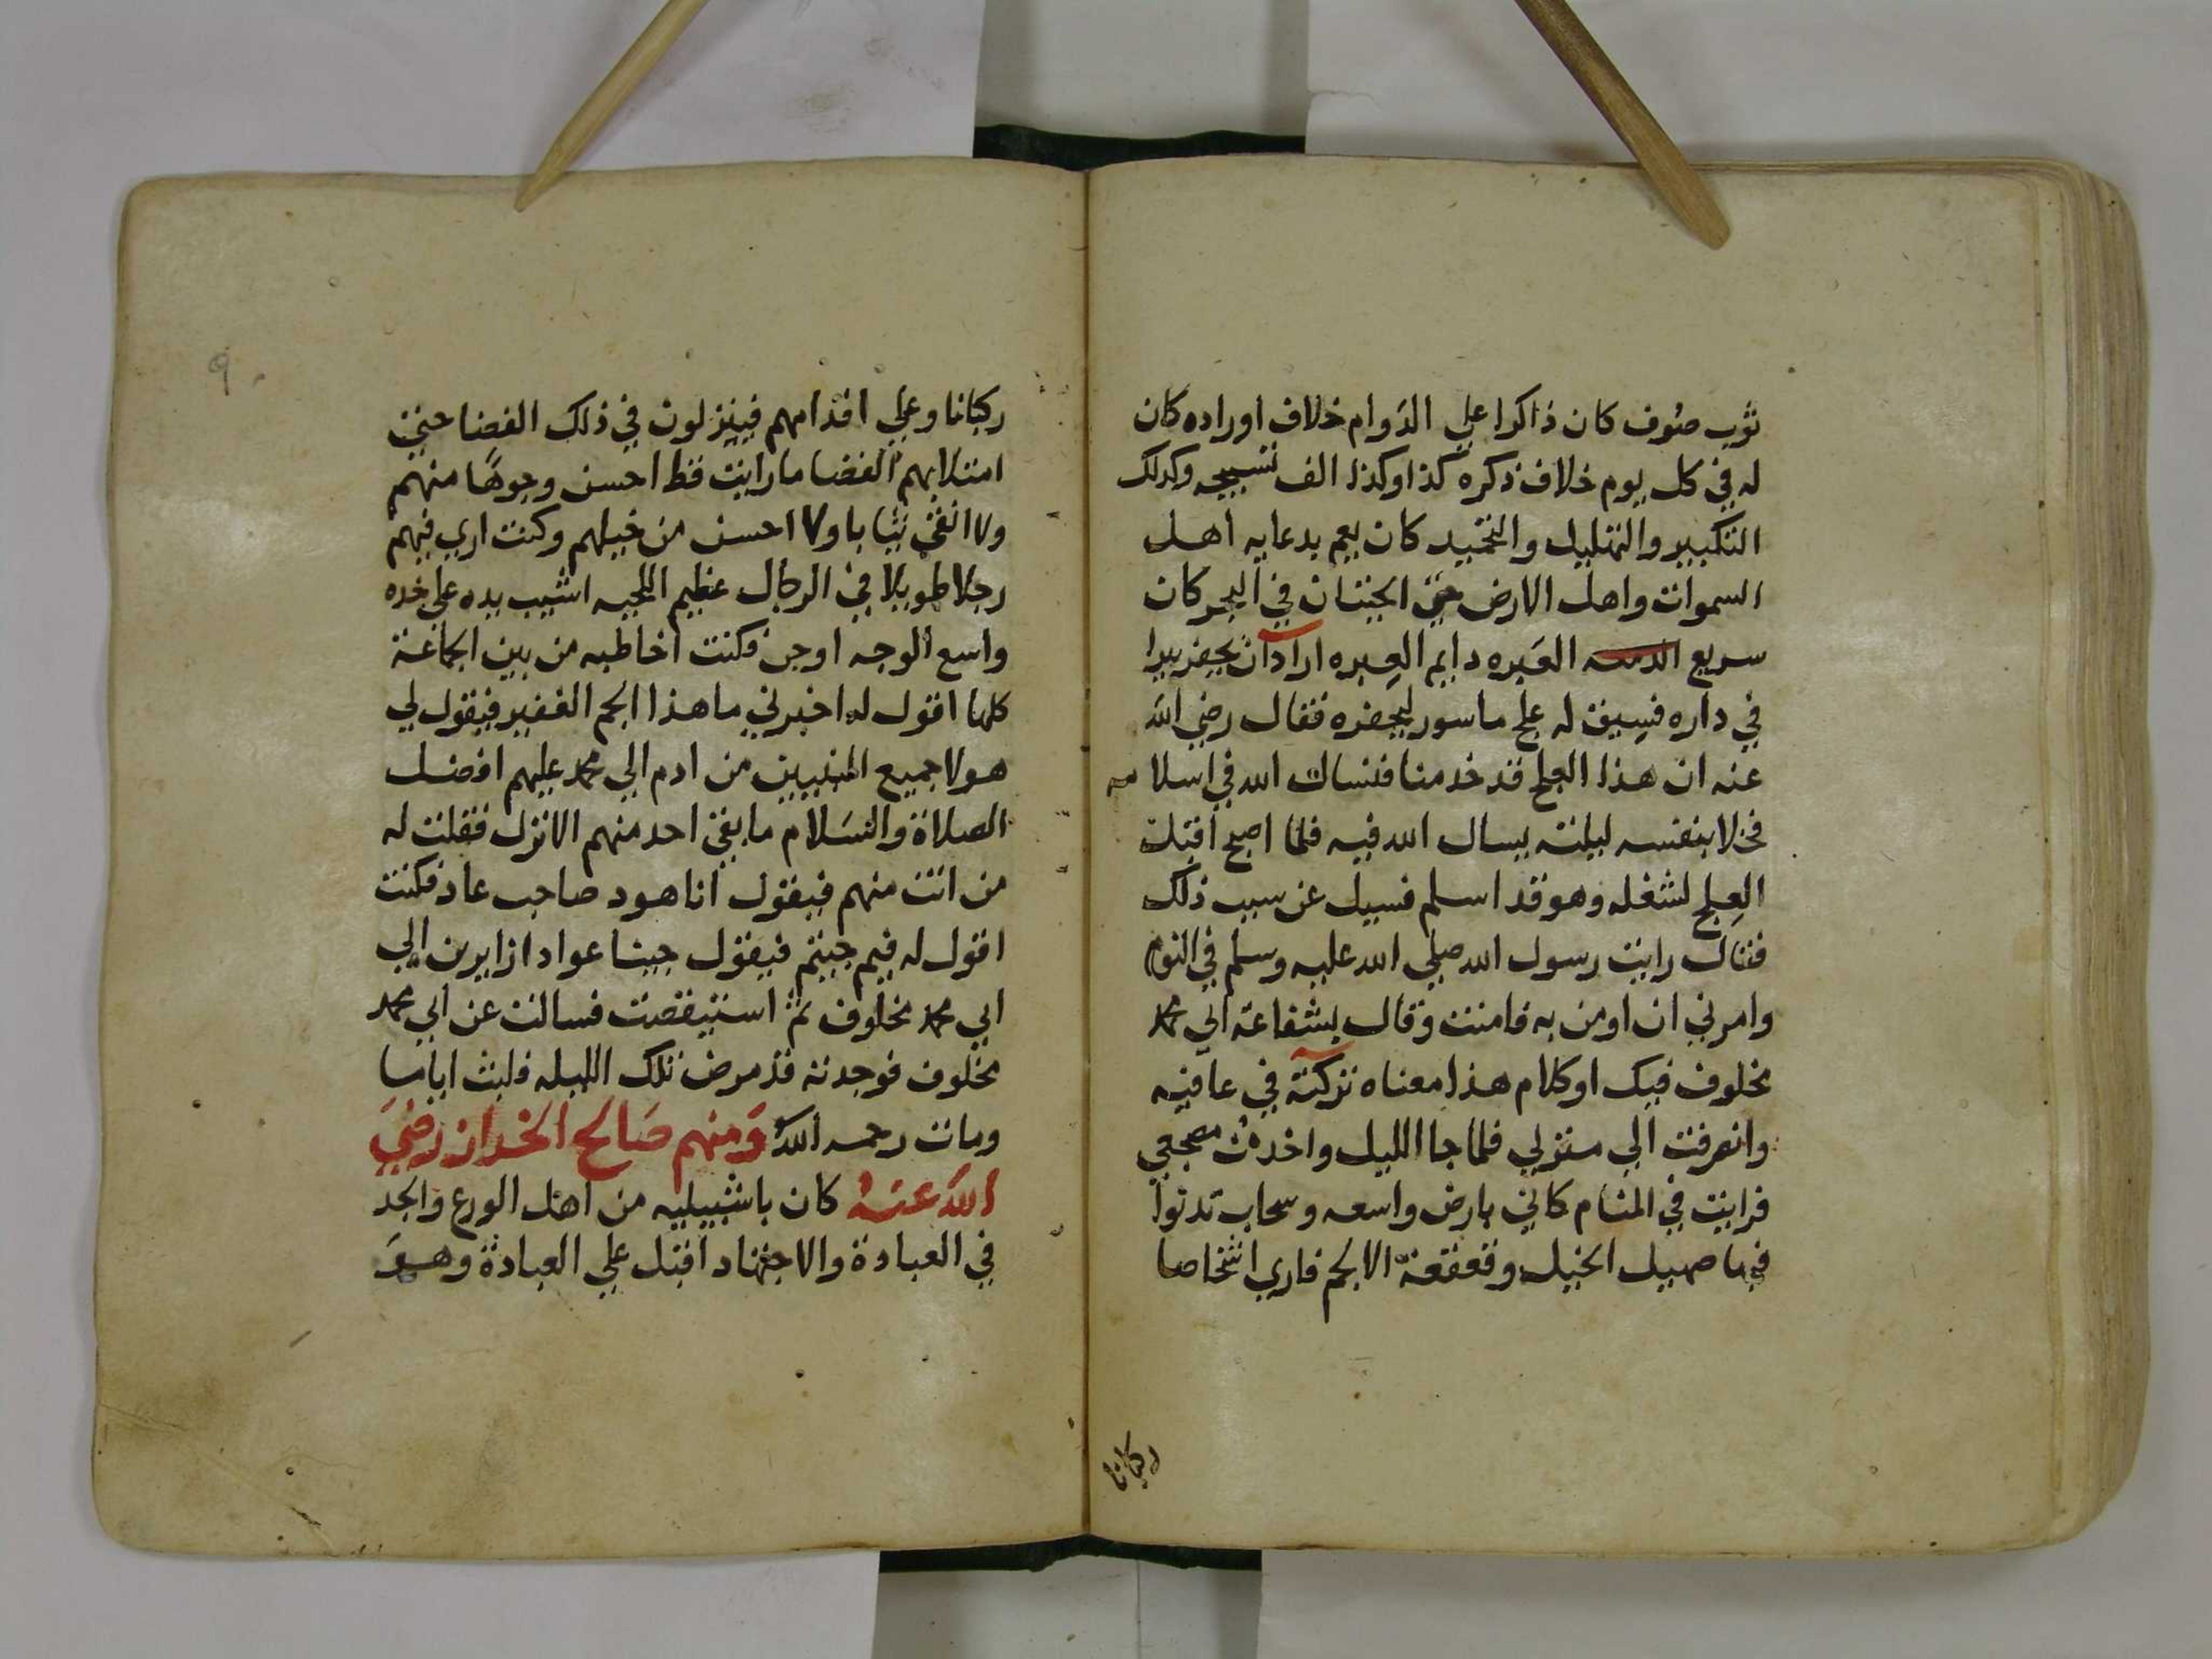 ثوب صوف كان ذاكرا علي الدوام خلاف اوراده كان
له في كل يوم خلاف ذكره كذا وكذا الف تسبيحه وكدلك
التكبير والتهليل والتحميد كان يعم بدعايه اهل
السموات واهل الارض حتي الحيتان في البحر كان
سريع العبره دايم العبره اراد ان يحفر بيرا
في داره فسيق له علج ماسور ليحفره فقال رضي الله
عنه ان هذا العلج قد خدمنا فنسال الله في اسلامه
فخلا بنفسه ليلته يسال الله فيه فلما اصبح اقبل
العلج لشغله وهو قد اسلم فسيل عن سبب ذلك
فقال رايت رسول الله صلي الله عليه وسلم في النوم
وامرني ان اومن به فامنت وقال بشفاعة ابي محمد
مخلوف فيك او كلام هذا معناه تركته في عافيه
وانصرفت الي منزلي فلما جا الليل واخذت مضجعي
فرايت في المنام كاني بارض واسعه وسحاب تدنوا
فيها صهيل الخيل وقعقعة الالجم فاري اشخاصا
ركبانا
٩٠
ركبانا وعلي اقدامهم فينزلون في ذلك الفضا حتي
امتلا بهم الفضا ما رايت قط احسن وجوها منهم
ولا انقي ثيابا ولا احسن من خيلهم وكنت اري فيهم
رجلا طويلا في الرجال عظيم اللحيه اشيب يده علي خده
واسع الوجه اوجن فكنت اخاطبه من بين الجماعة
كلها اقول له اخبرني ما هذا الجم الغفير فيقول لي
هولا جميع النبيين من ادم الي محمد عليهم افضل
الصلاة والسلام ما بقي احد منهم الا نزل فقلت له
من انت منهم فيقول انا هود صاحب عاد فكنت
اقول له فيم جيتم فيقول جينا عوادا زايرين الي
ابي محمد مخلوف ثم استيقضت فسالت عن ابي محمد
مخلوف فوجدته قد مرض تلك الليله فلبث اياما
ومات رحمه الله ومنهم صالح الخراز رضي
الله عنه كان باشبيليه من اهل الورع والجد
في العبادة والاجتهاد اقبل علي العبادة وهو